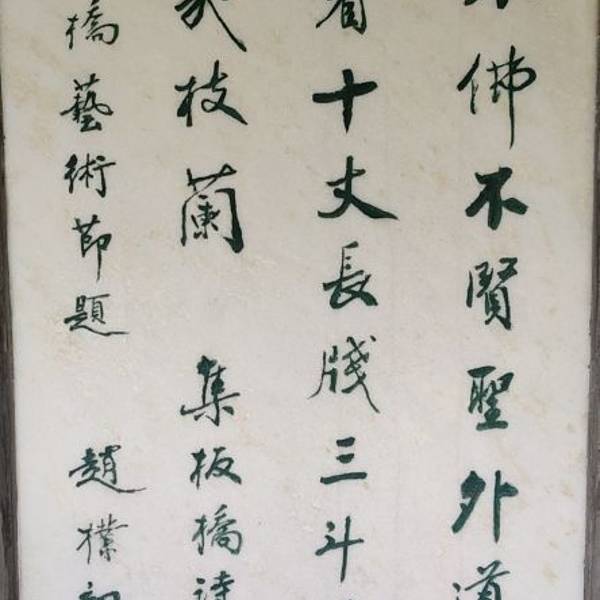 佛不賢聖外道
看十丈長牋三斗
枝蘭 集板橋詩
橋藝術節題 趙樸初